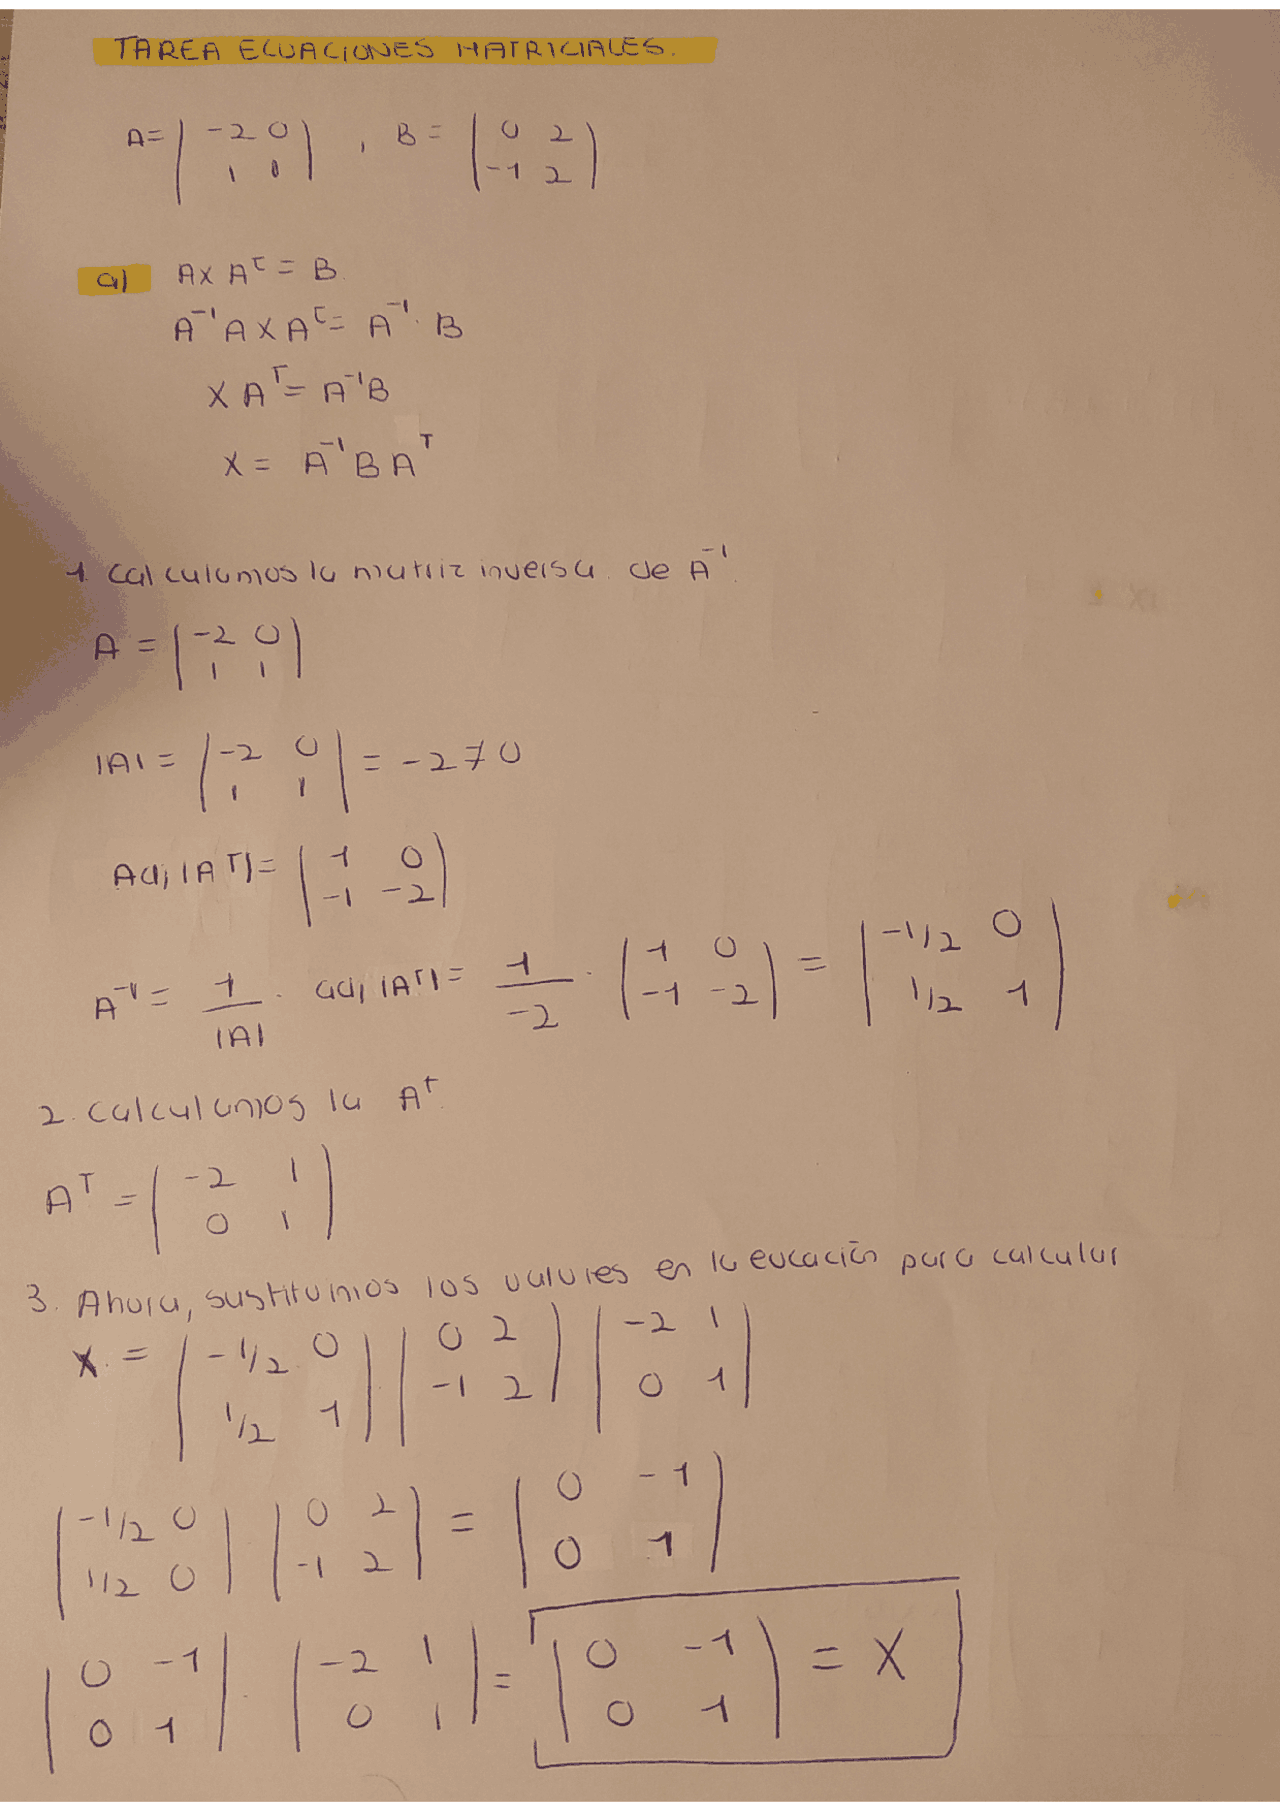 TAREA ECUACIONES MATRICIALES.
A = | -2 0 | , B = | 0 2 |
1 1 -1 2
a) A X Aᵗ = B.
A⁻¹ A X Aᵗ = A⁻¹ · B
X Aᵀ = A⁻¹B
X = A⁻¹ B Aᵀ
1. Calculamos la matriz inversa de A⁻¹.
A = | -2 0 |
1 1
|A| = | -2 0 | = -2 ≠ 0
1 1
Adj |Aᵀ| = | 1 0 |
-1 -2
A⁻¹ = 1/|A| · adj |Aᵀ| = 1/-2 · | 1 0 | = | -1/2 0 |
-1 -2 1/2 1
2. Calculamos la Aᵗ.
Aᵀ = | -2 1 |
0 1
3. Ahora, sustituimos los valores en la eucación para calcular
X = | -1/2 0 | | 0 2 | | -2 1 |
1/2 1 -1 2 0 1
| -1/2 0 | | 0 2 | = | 0 -1 |
1/2 0 -1 2 0 1
| 0 -1 | · | -2 1 | = | 0 -1 | = X
0 1 0 1 0 1